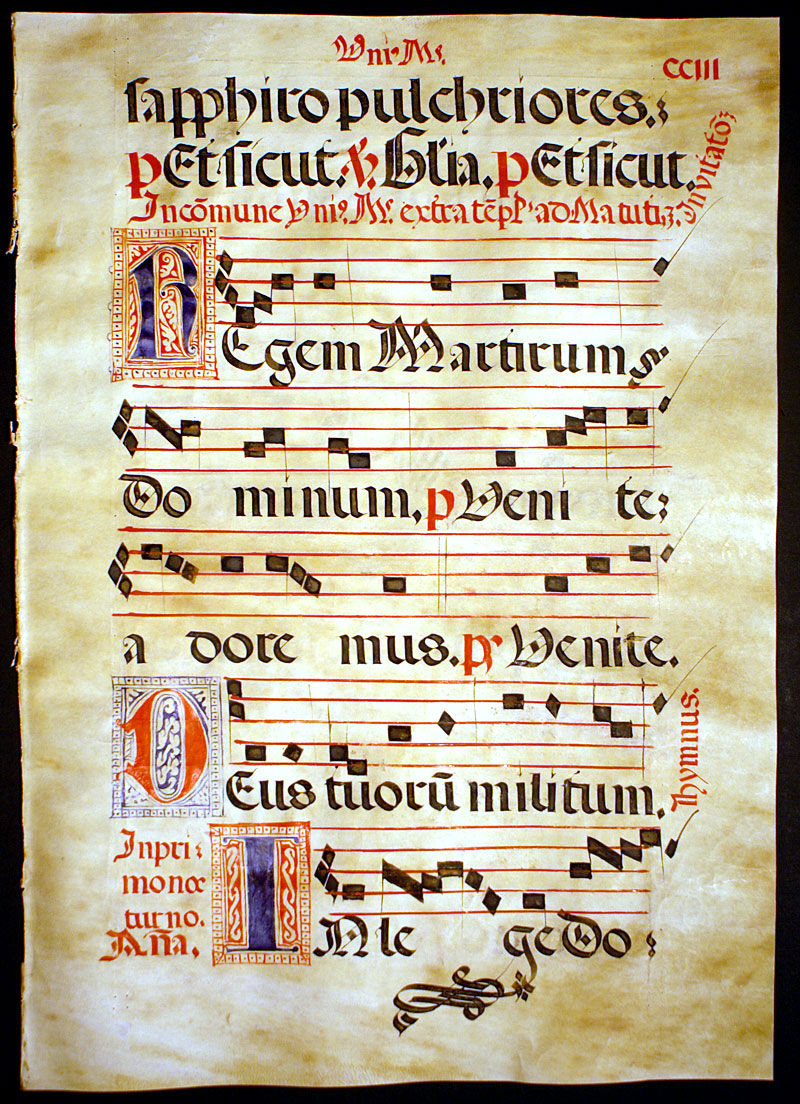 Vniꝰ. Mꝭ.
CCIII
sapphiro pulchriores.
p Et sicut. ℣. Gl'ia. p Et sicut.
Jn cõmune Vniꝰ. Mꝭ. extra tẽpꝭ ad Matutiꝫ. Jnvitatoꝫ
REgem Martirum
Do minum, p Veni te
a dore mus. ps Venite.
DEus tuorũ militum. Hymnus.
Jn pri
mo noc
turno.
Añа.
IN le ge Do